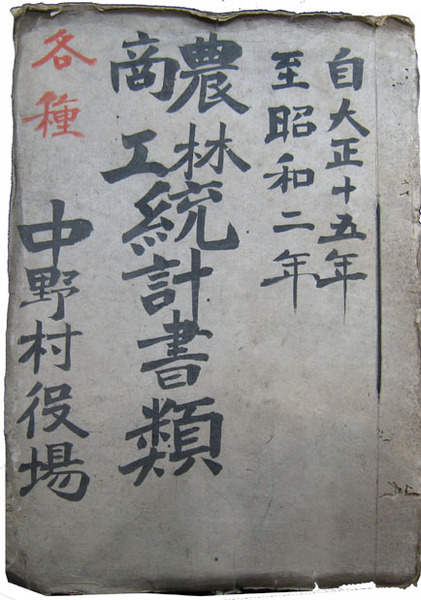 自大正十五年
至昭和二年
農林
商工
統計書類
各種
中野村役場